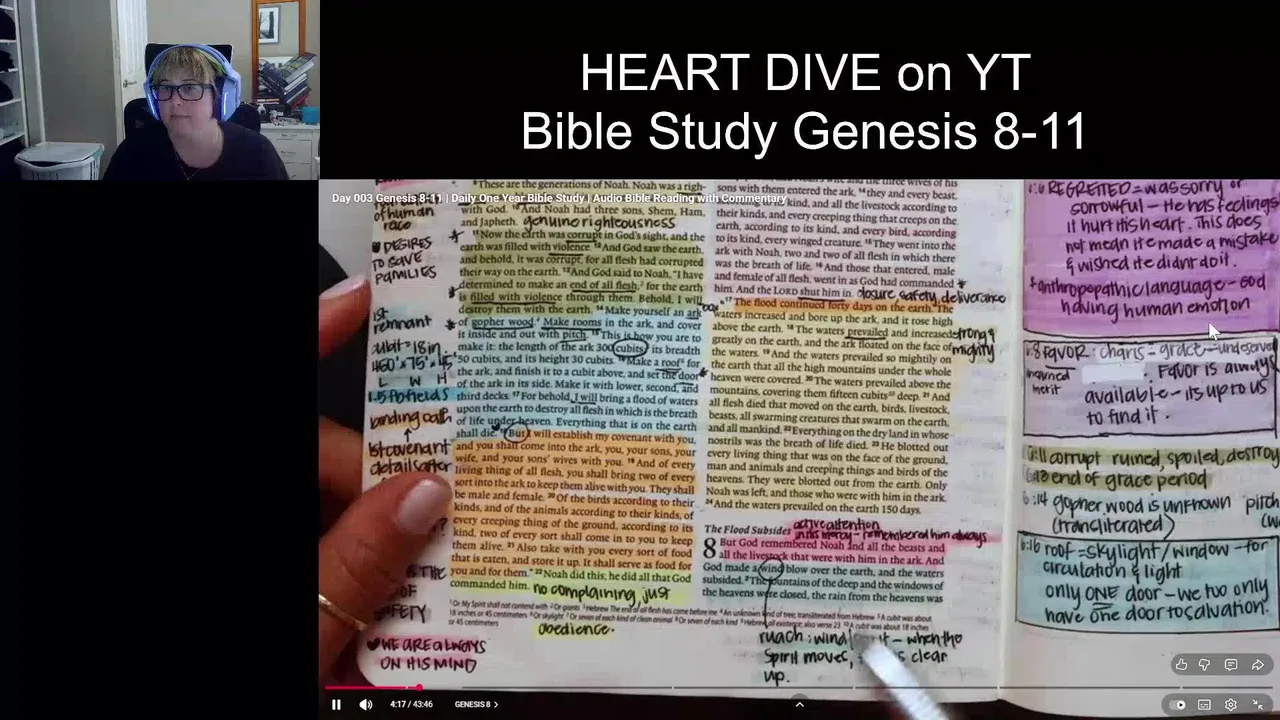 HEART DIVE on YT
Bible Study Genesis 8-11
Day 003 Genesis 8-11 | Daily One Year Bible Study | Audio Bible Reading with Commentary
of human
race
DESIRES
TO SAVE
FAMILIES
1st
remnant
cubit = 18in
L W H
landing
1st covenant
details after
OF
SAFETY
WE ARE ALWAYS
ON HIS MIND
These are the generations of Noah. Noah was a righ-
with God. And Noah had three sons, Shem, Ham,
and Japheth. genuine righteousness
11 Now the earth was corrupt in God's sight, and the
earth was filled with violence. 12 And God saw the earth,
and behold, it was corrupt, for all flesh had corrupted
their way on the earth. 13 And God said to Noah, "I have
determined to make an end of all flesh, for the earth
is filled with violence through them. Behold, I will
destroy them with the earth. 14 Make yourself an ark
of gopher wood. Make rooms in the ark, and cover
it inside and out with pitch. 15 This is how you are to
make it: the length of the ark 300 cubits, its breadth
50 cubits, and its height 30 cubits. 16 Make a roof for
the ark, and finish it to a cubit above, and set the door
of the ark in its side. Make it with lower, second, and
third decks. 17 For behold, I will bring a flood of waters
upon the earth to destroy all flesh in which is the breath
of life under heaven. Everything that is on the earth
shall die. 18 But I will establish my covenant with you,
and you shall come into the ark, you, your sons, your
wife, and your sons' wives with you. 19 And of every
living thing of all flesh, you shall bring two of every
sort into the ark to keep them alive with you. They shall
be male and female. 20 Of the birds according to their
kinds, and of the animals according to their kinds, of
every creeping thing of the ground, according to its
kind, two of every sort shall come in to you to keep
them alive. 21 Also take with you every sort of food
that is eaten, and store it up. It shall serve as food for
you and for them." 22 Noah did this; he did all that God
commanded him. no complaining, just
obedience.
sons with them entered the ark, 14 they and every beast,
kind, and all the livestock according to
their kinds, and every creeping thing that creeps on the
earth, according to its kind, and every bird, according
to its kind, every winged creature. 15 They went into the
ark with Noah, two and two of all flesh in which there
was the breath of life. 16 And those that entered, male
and female of all flesh, went in as God had commanded
him. And the LORD shut him in. closure, safety, deliverance
17 The flood continued forty days on the earth. The
waters increased and bore up the ark, and it rose high
above the earth. 18 The waters prevailed and increased strong &
greatly on the earth, and the ark floated on the face of mighty
the waters. 19 And the waters prevailed so mightily on
the earth that all the high mountains under the whole
heaven were covered. 20 The waters prevailed above the
mountains, covering them fifteen cubits deep. 21 And
all flesh died that moved on the earth, birds, livestock,
beasts, all swarming creatures that swarm on the earth,
and all mankind. 22 Everything on the dry land in whose
nostrils was the breath of life died. 23 He blotted out
every living thing that was on the face of the ground,
man and animals and creeping things and birds of the
heavens. They were blotted out from the earth. Only
Noah was left, and those who were with him in the ark.
24 And the waters prevailed on the earth 150 days.
The Flood Subsides active attention
remembered him always
8 But God remembered Noah and all the beasts and
all the livestock that were with him in the ark. And
God made a wind blow over the earth, and the waters
subsided. 2 The fountains of the deep and the windows of
the heavens were closed, the rain from the heavens was
ruach: wind - when the
Spirit moves, clear
up.
6:6 REGRETTED = was sorry or
sorrowful - He has feelings
it hurt His heart. This does
not mean He made a mistake
& wished He didn't do it.
*anthropopathic language - God
having human emotion
6:8 FAVOR: charis = grace = undeserved
unearned merit Favor is always
available - its up to us
to find it.
6:11 corrupt ruined, spoiled, destroy
6:13 end of grace period
6:14 gopher wood is unknown pitch
(transliterated)
6:16 roof = skylight/window - for
circulation & light
only ONE door - we too only
have one door to salvation.
4:17 / 43:46 GENESIS 8 >